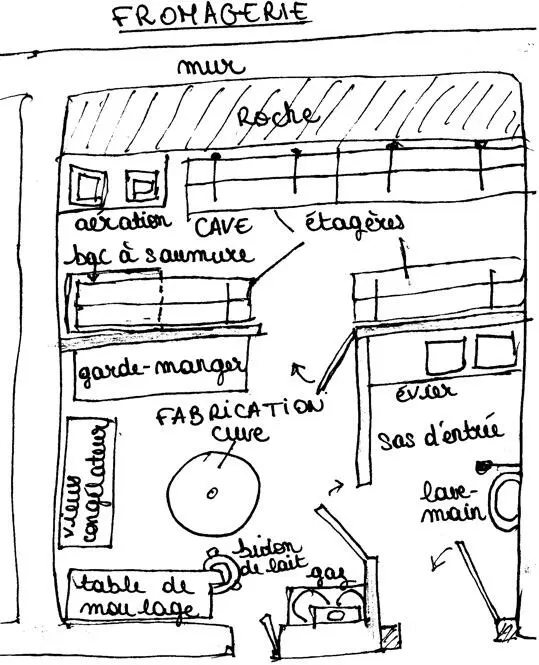 FROMAGERIE
mur
ROCHE
aération
CAVE
étagères
bac à saumure
garde-manger
évier
FABRICATION
cuve
sas d'entrée
vieux
congélateur
lave-
main
bidon
de lait
gaz
table de
moulage